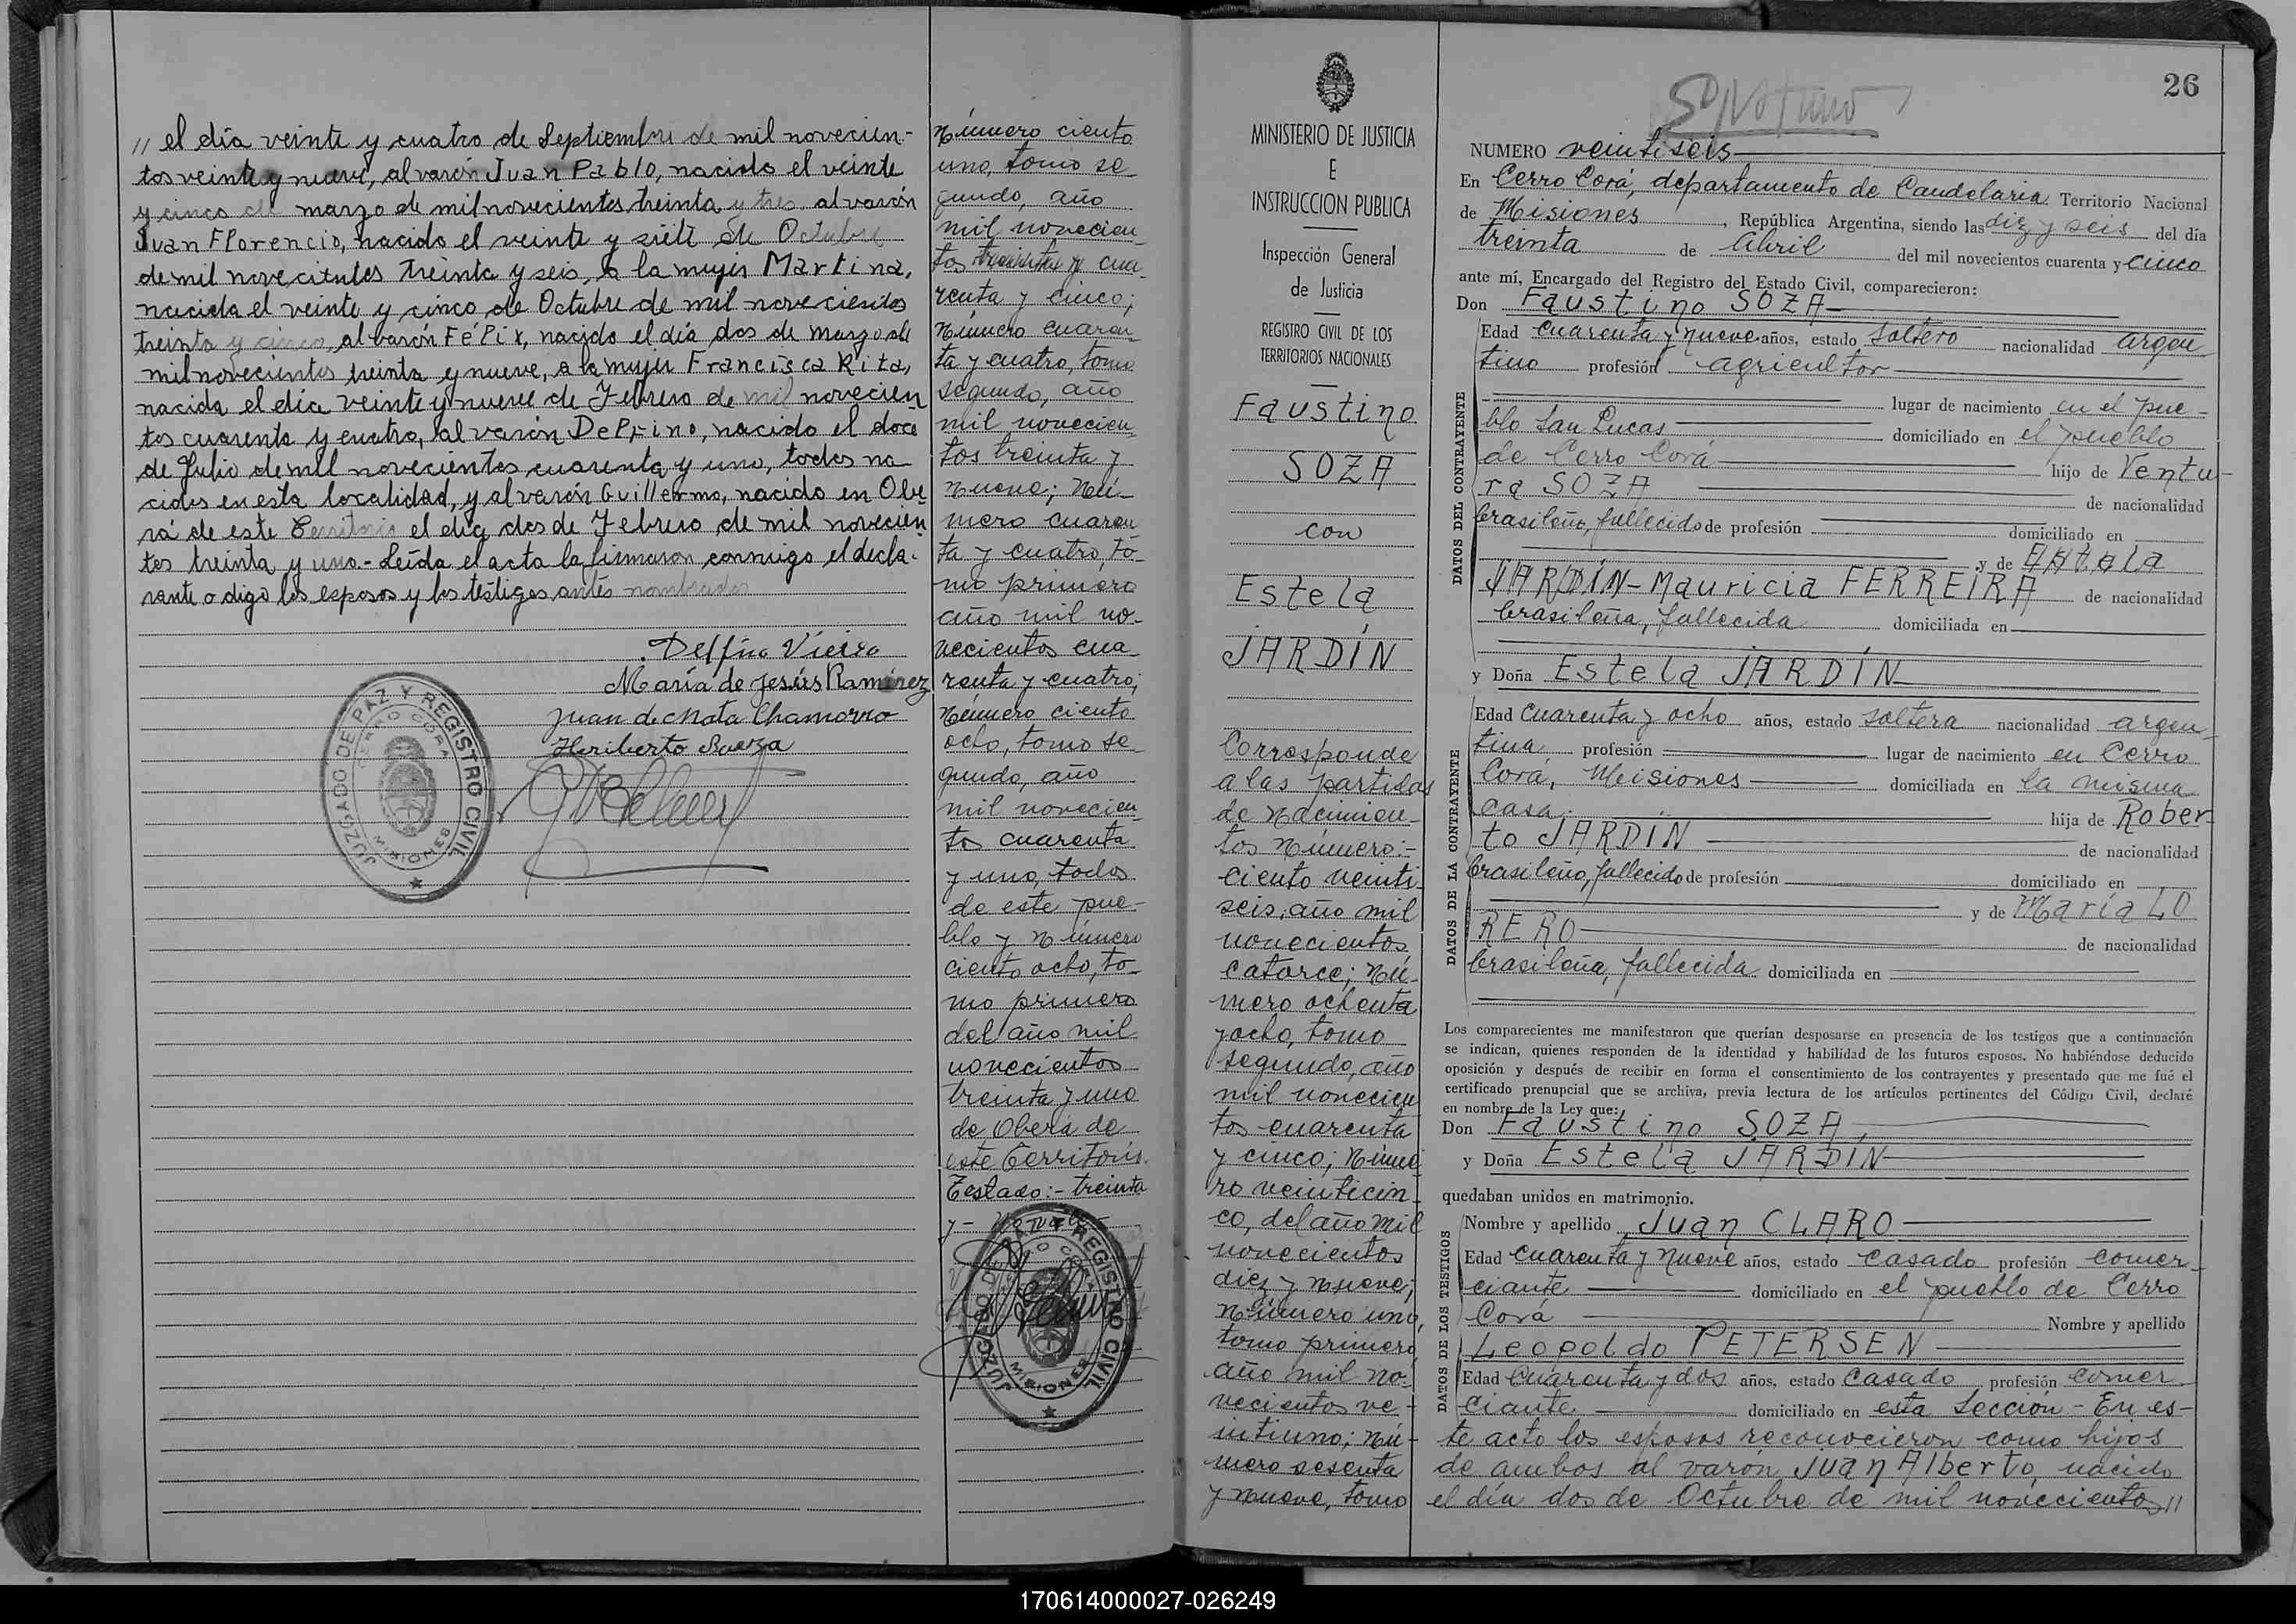 // el día veinte y cuatro de Septiembre de mil novecien-
tos veinte y nueve, al varón Juan Pablo, nacido el veinte
y cinco de marzo de mil novecientos treinta y tres, al varón
Juan Florencio, nacido el veinte y siete de Octubre
de mil novecientos treinta y seis, a la mujer Martina,
nacida el veinte y cinco de Octubre de mil novecientos
treinta y cinco, al varón Félix, nacido el día dos de marzo de
mil novecientos treinta y nueve, a la mujer Francisca Rita,
nacida el día veinte y nueve de Febrero de mil novecien
tos cuarenta y cuatro, al varón Delfino, nacido el doce
de Julio de mil novecientos cuarenta y uno, todos na
cidos en esta localidad, y al varón Guillermo, nacido en Obe
rá de este Territorio el día dos de Febrero de mil novecien
tos treinta y uno.- Leída el acta la firmaron conmigo el decla-
rante o digo los esposos y los testigos antes nombrados
Delfino Vieira
María de Jesús Ramirez
Juan de Mata Chamorro
Heriberto
JUZGADO DE PAZ Y REGISTRO CIVIL
CERRO CORA
MISIONES
Número ciento
uno, tomo se-
gundo, año
mil novecien-
tos treinta y cua-
renta y cinco;
Número cuaren-
ta y cuatro, tomo
segundo, año
mil novecien-
tos treinta y
nueve; Nú-
mero cuaren
ta y cuatro, to-
mo primero
año mil no-
vecientos cua-
renta y cuatro;
Número ciento
ocho, tomo se-
gundo, año
mil novecien-
tos cuarenta
y uno, todos
de este pue-
blo y Número
ciento ocho, to-
mo primero
del año mil
novecientos
treinta y uno
de Oberá de
este Territorio.
Testado:- treinta
y -
JUZGADO DE PAZ Y REGISTRO CIVIL
CERRO CORA
MISIONES
MINISTERIO DE JUSTICIA
E
INSTRUCCION PUBLICA
Inspección General
de Justicia
REGISTRO CIVIL DE LOS
TERRITORIOS NACIONALES
Faustino
SOZA
con
Estela
JARDÍN
Corresponde
a las partidas
de Nacimien-
tos Número:-
ciento veinti-
seis, año mil
novecientos
catorce; Nú-
mero ochenta
y ocho, tomo
segundo, año
mil novecien
tos cuarenta
y cinco; Núme
ro veinticin-
co, del año mil
novecientos
diez y nueve;
Número uno,
tomo primero
año mil no-
vecientos ve-
intiuno; Nú-
mero sesenta
y nueve, tomo
26
NUMERO veintiseis
En Cerro Corá, departamento de Candelaria Territorio Nacional
de Misiones, República Argentina, siendo las diez y seis del día
treinta de Abril del mil novecientos cuarenta y cinco
ante mí, Encargado del Registro del Estado Civil, comparecieron:
Don Faustino SOZA
DATOS DEL CONTRAYENTE
Edad cuarenta y nueve años, estado soltero nacionalidad argen
tino profesión agricultor
lugar de nacimiento en el pue-
blo San Lucas domiciliado en el pueblo
de Cerro Corá hijo de Ventu-
ra SOZA de nacionalidad
brasileño, fallecido de profesión domiciliado en
y de
JARDÍN-Mauricia FERREIRA de nacionalidad
brasileña, fallecida domiciliada en
y Doña Estela JARDÍN
DATOS DE LA CONTRAYENTE
Edad cuarenta y ocho años, estado soltera nacionalidad argen-
tina profesión lugar de nacimiento en Cerro
Corá, Misiones domiciliada en la misma
casa hija de Rober-
to JARDÍN de nacionalidad
brasileño, fallecido de profesión domiciliado en
y de María LO
RERO de nacionalidad
brasileña, fallecida domiciliada en
Los comparecientes me manifestaron que querían desposarse en presencia de los testigos que a continuación
se indican, quienes responden de la identidad y habilidad de los futuros esposos. No habiéndose deducido
oposición y después de recibir en forma el consentimiento de los contrayentes y presentado que me fué el
certificado prenupcial que se archiva, previa lectura de los artículos pertinentes del Código Civil, declaré
en nombre de la Ley que:
Don Faustino SOZA,
y Doña Estela JARDÍN
quedaban unidos en matrimonio.
DATOS DE LOS TESTIGOS
Nombre y apellido Juan CLARO
Edad cuarenta y nueve años, estado casado profesión comer-
ciante domiciliado en el pueblo de Cerro
Corá Nombre y apellido
Leopoldo PETERSEN
Edad cuarenta y dos años, estado casado profesión comer
ciante domiciliado en esta Sección - En es-
te acto los esposos reconocieron como hijos
de ambos al varón Juan Alberto, nacido
el día dos de Octubre de mil novecientos //
170614000027-026249